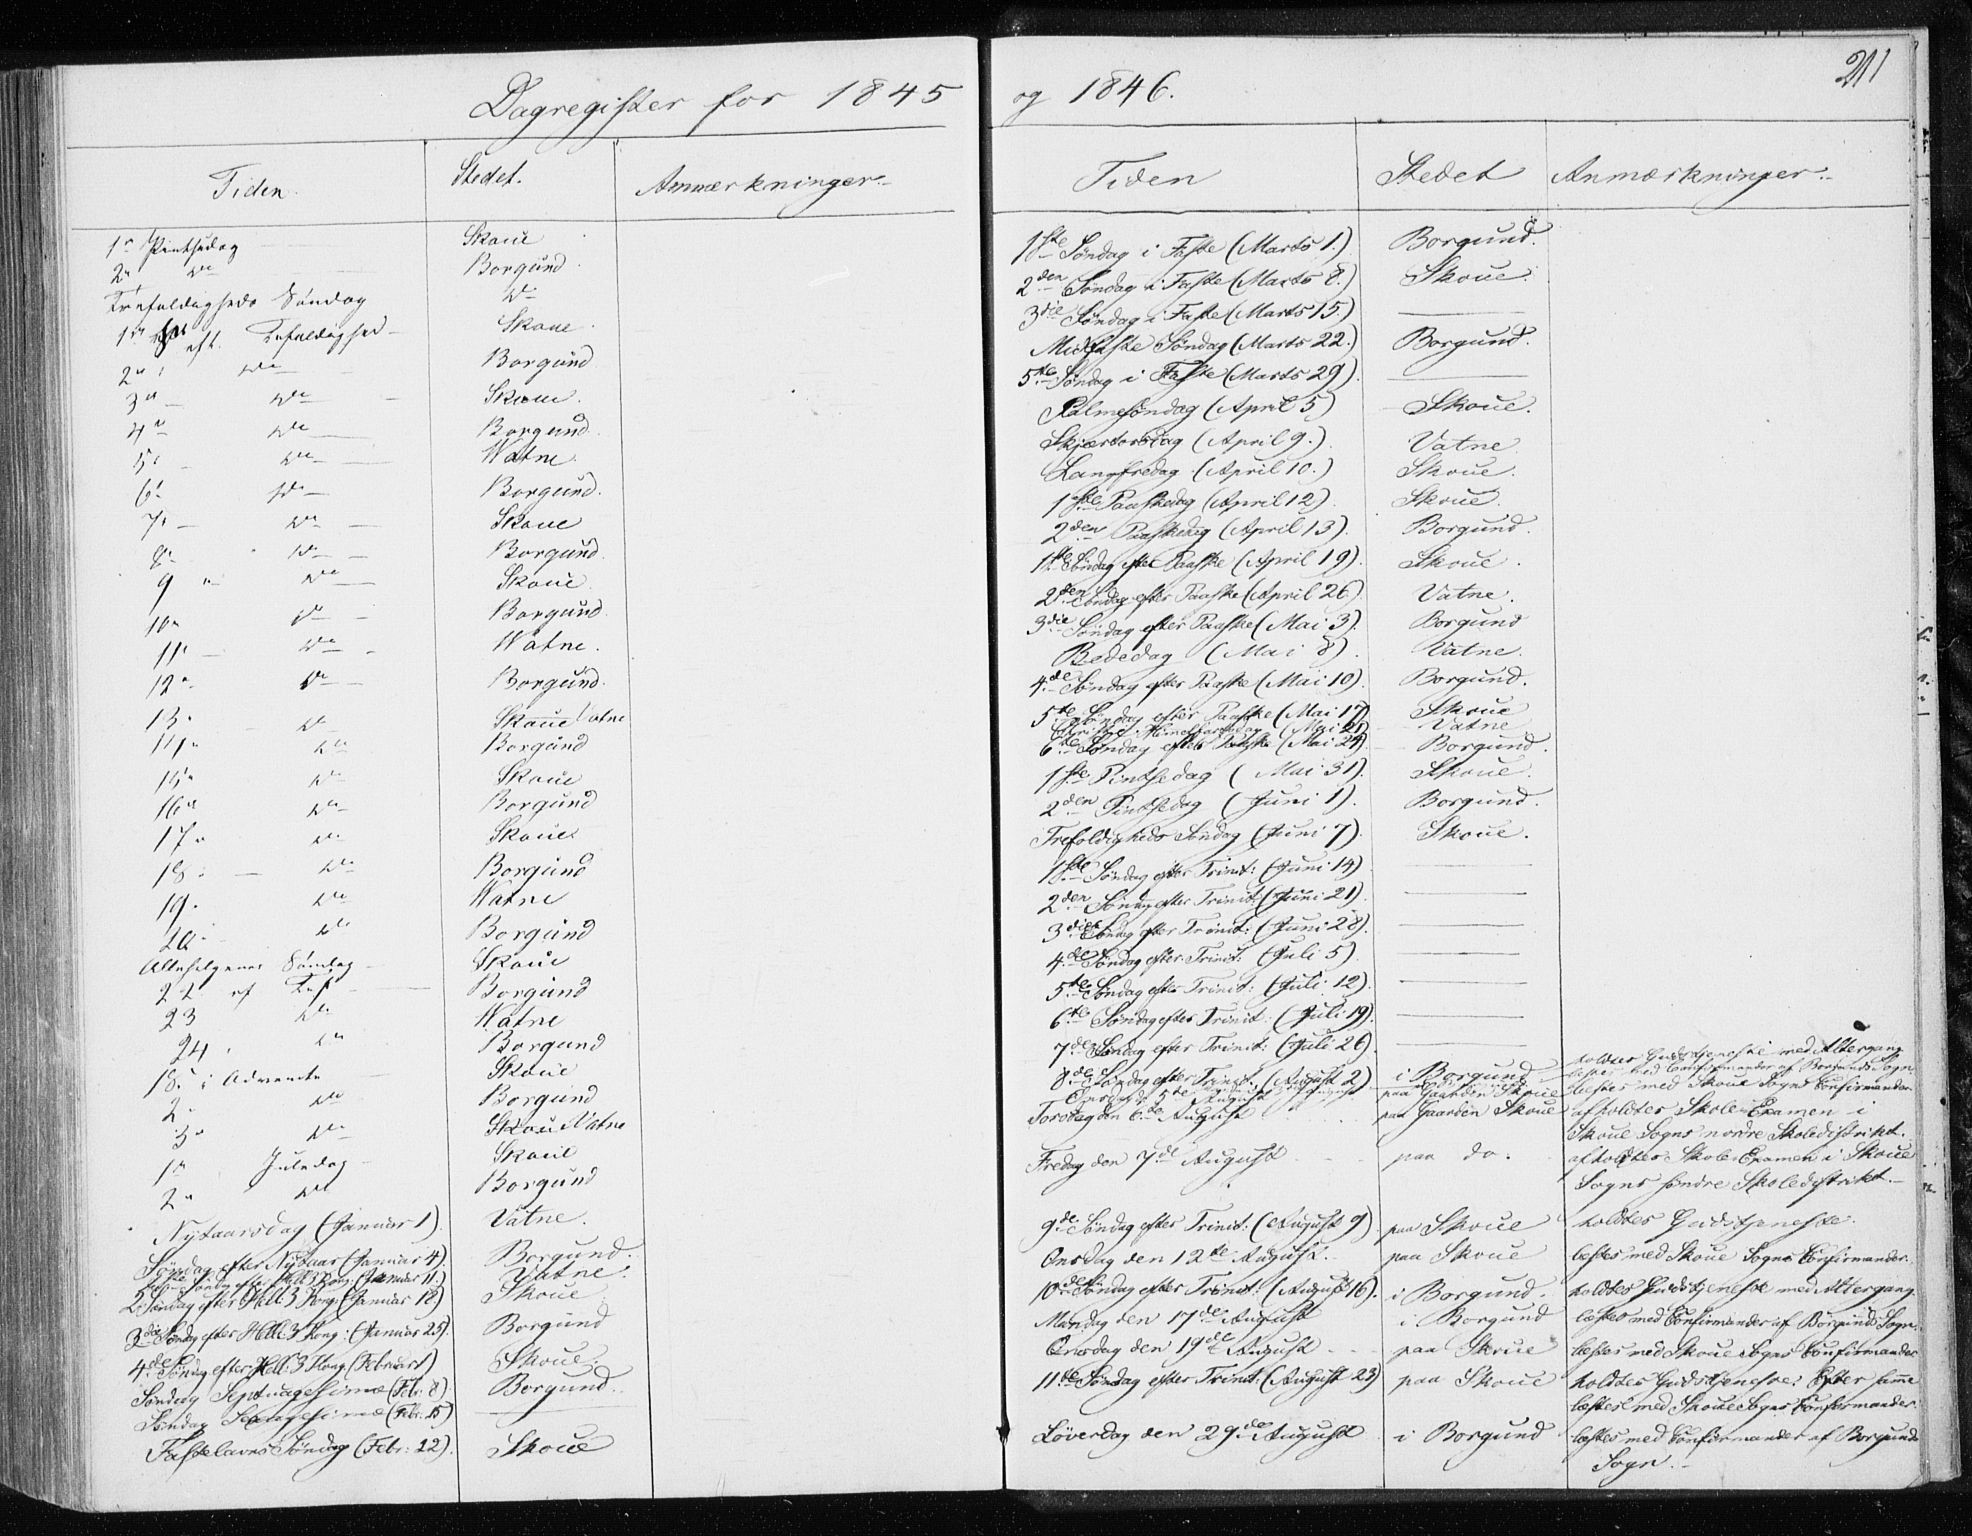 Dagregister for 1845
Tiden. Stedet. Anmærkninger.
1n Pintsedag Skoue
2n do Borgund
Trefoldigheds Søndag do
1n eft. Trefoldighed Skoue
2n do Borgund
3n do Skoue.
4n do Borgund
5n do Watne
6n do Borgund.
7n do Skoue
8n do Borgund.
9n do Skoue
10n do Borgund
11n do Watne.
12n do Borgund.
13n do Skoue Vatne
14n do Borgund
15n do Skoue
16n do Borgund
17n do Skoue
18n do Borgund
19n do Watne
20n do Borgund
Allehelgenes Søndag Skoue
22 ef Tref Borgund
23 do Watne
24 do Borgund
1Sn i Advendte Skoue
2n do Borgund
3n do Skoue Vatne
1n Juledag Skoue
2n do Borgund
Nytaarsdag (Januar 1). Vatne.
Søndag efter Nytaar (Januar 4). Borgund.
1ste Søndag efter Hell. 3 Kong: (Januar 11.) Vatne.
2. Søndag efter Hell. 3 Kong: (Januar 18) Skoue
3die Søndag efter Hell: 3 Kong: (Januar 25). Borgund
4de Søndag efter Hell: 3 Kong. (Februar 1) Skoue.
Søndag Septuagesima (Febr. 8). Borgund.
Søndag Sexagesima (Febr. 15)
Fastelavns Søndag (Febr: 22). Skoue
211
og 1846.
Tiden Stedet Anmærkninger.
1ste Søndag i Faste (Marts 1.) Borgund.
2den Søndag i Faste (Marts 8.) Skoue.
3die Søndag i Faste (Marts 15.)
Midfaste Søndag (Marts 22.) Borgund.
5te Søndag i Faste (Marts 29).
Palmesøndag (April 5) Skoue.
Skjærtorsdag (April 9.) Vatne
Langfredag (April 10.) Skoue.
1ste Paaskedag (April 12). Skoue.
2den Paaskedag (April 13). Borgund.
1ste Søndag efter Paaske (April 19). Skoue.
2den Søndag efter Paaske (April 26). Vatne.
3die Søndag efter Paaske (Mai 3). Borgund
Bededag (Mai 8). Vatne.
4de Søndag efter Paaske (Mai 10). Borgund.
5te Søndag efter Paaske (Mai 17) Skoue
Christi Himmelfartsdag (Mai 21) Vatne
6te Søndag efter Paaske (Mai 24) Borgund.
1ste Pintsedag (Mai 31). Skoue.
2den Pintsedag (Juni 1). Borgund.
Trefoldigheds Søndag (Juni 7). Skoue.
1ste Søndag efter Trinit: (Juni 14).
2den Søndag efter Trinit: (Juni 21).
3die Søndag efter Trinit: (Juni 28).
4de Søndag efter Trinit: (Juli 5).
5te Søndag efter Trinit: (Juli 12).
6te Søndag efter Trinit: (Juli 19).
7de Søndag efter Trinit: (Juli 26).
8de Søndag efter Trinit: (August 2) i Borgund holdtes Gudstjeneste med Altergang
læstes med Confirmander af Borgunds Sogn
Onsdag d. 5te August paa Gaarden Skoue læstes med Skoue Sogns Confirmander
Torsdag den 6te August paa Gaarden Skoue afholdtes Skole-Examen i
Skoue Sogns nordre Skoledistrikt.
Fredag den 7de August paa do. afholdtes Skole-Examen i Skoue
Sogns søndre Skoledistrikt.
9de Søndag efter Trinit: (August 9). paa Skoue holdtes Gudstjeneste.
Onsdag den 12te August. paa Skoue læstes med Skoue Sogns Confirmander.
10de Søndag efter Trinit: (August 16). i Borgund. holdtes Gudstjeneste med Altergang.
Mandag den 17de August i Borgund læstes med Confirmander af Borgunds Sogn.
Onsdag den 19de August paa Skoue læstes med Skoue Sogns Confirmander
11te Søndag efter Trinit: (August 23) paa Skoue holdtes Gudstjeneste; Efter samme
læstes med Skoue Sogns Confirmander.
Løverdag den 29de August i Borgund læstes med Confirmander af Borgunds
Sogn.